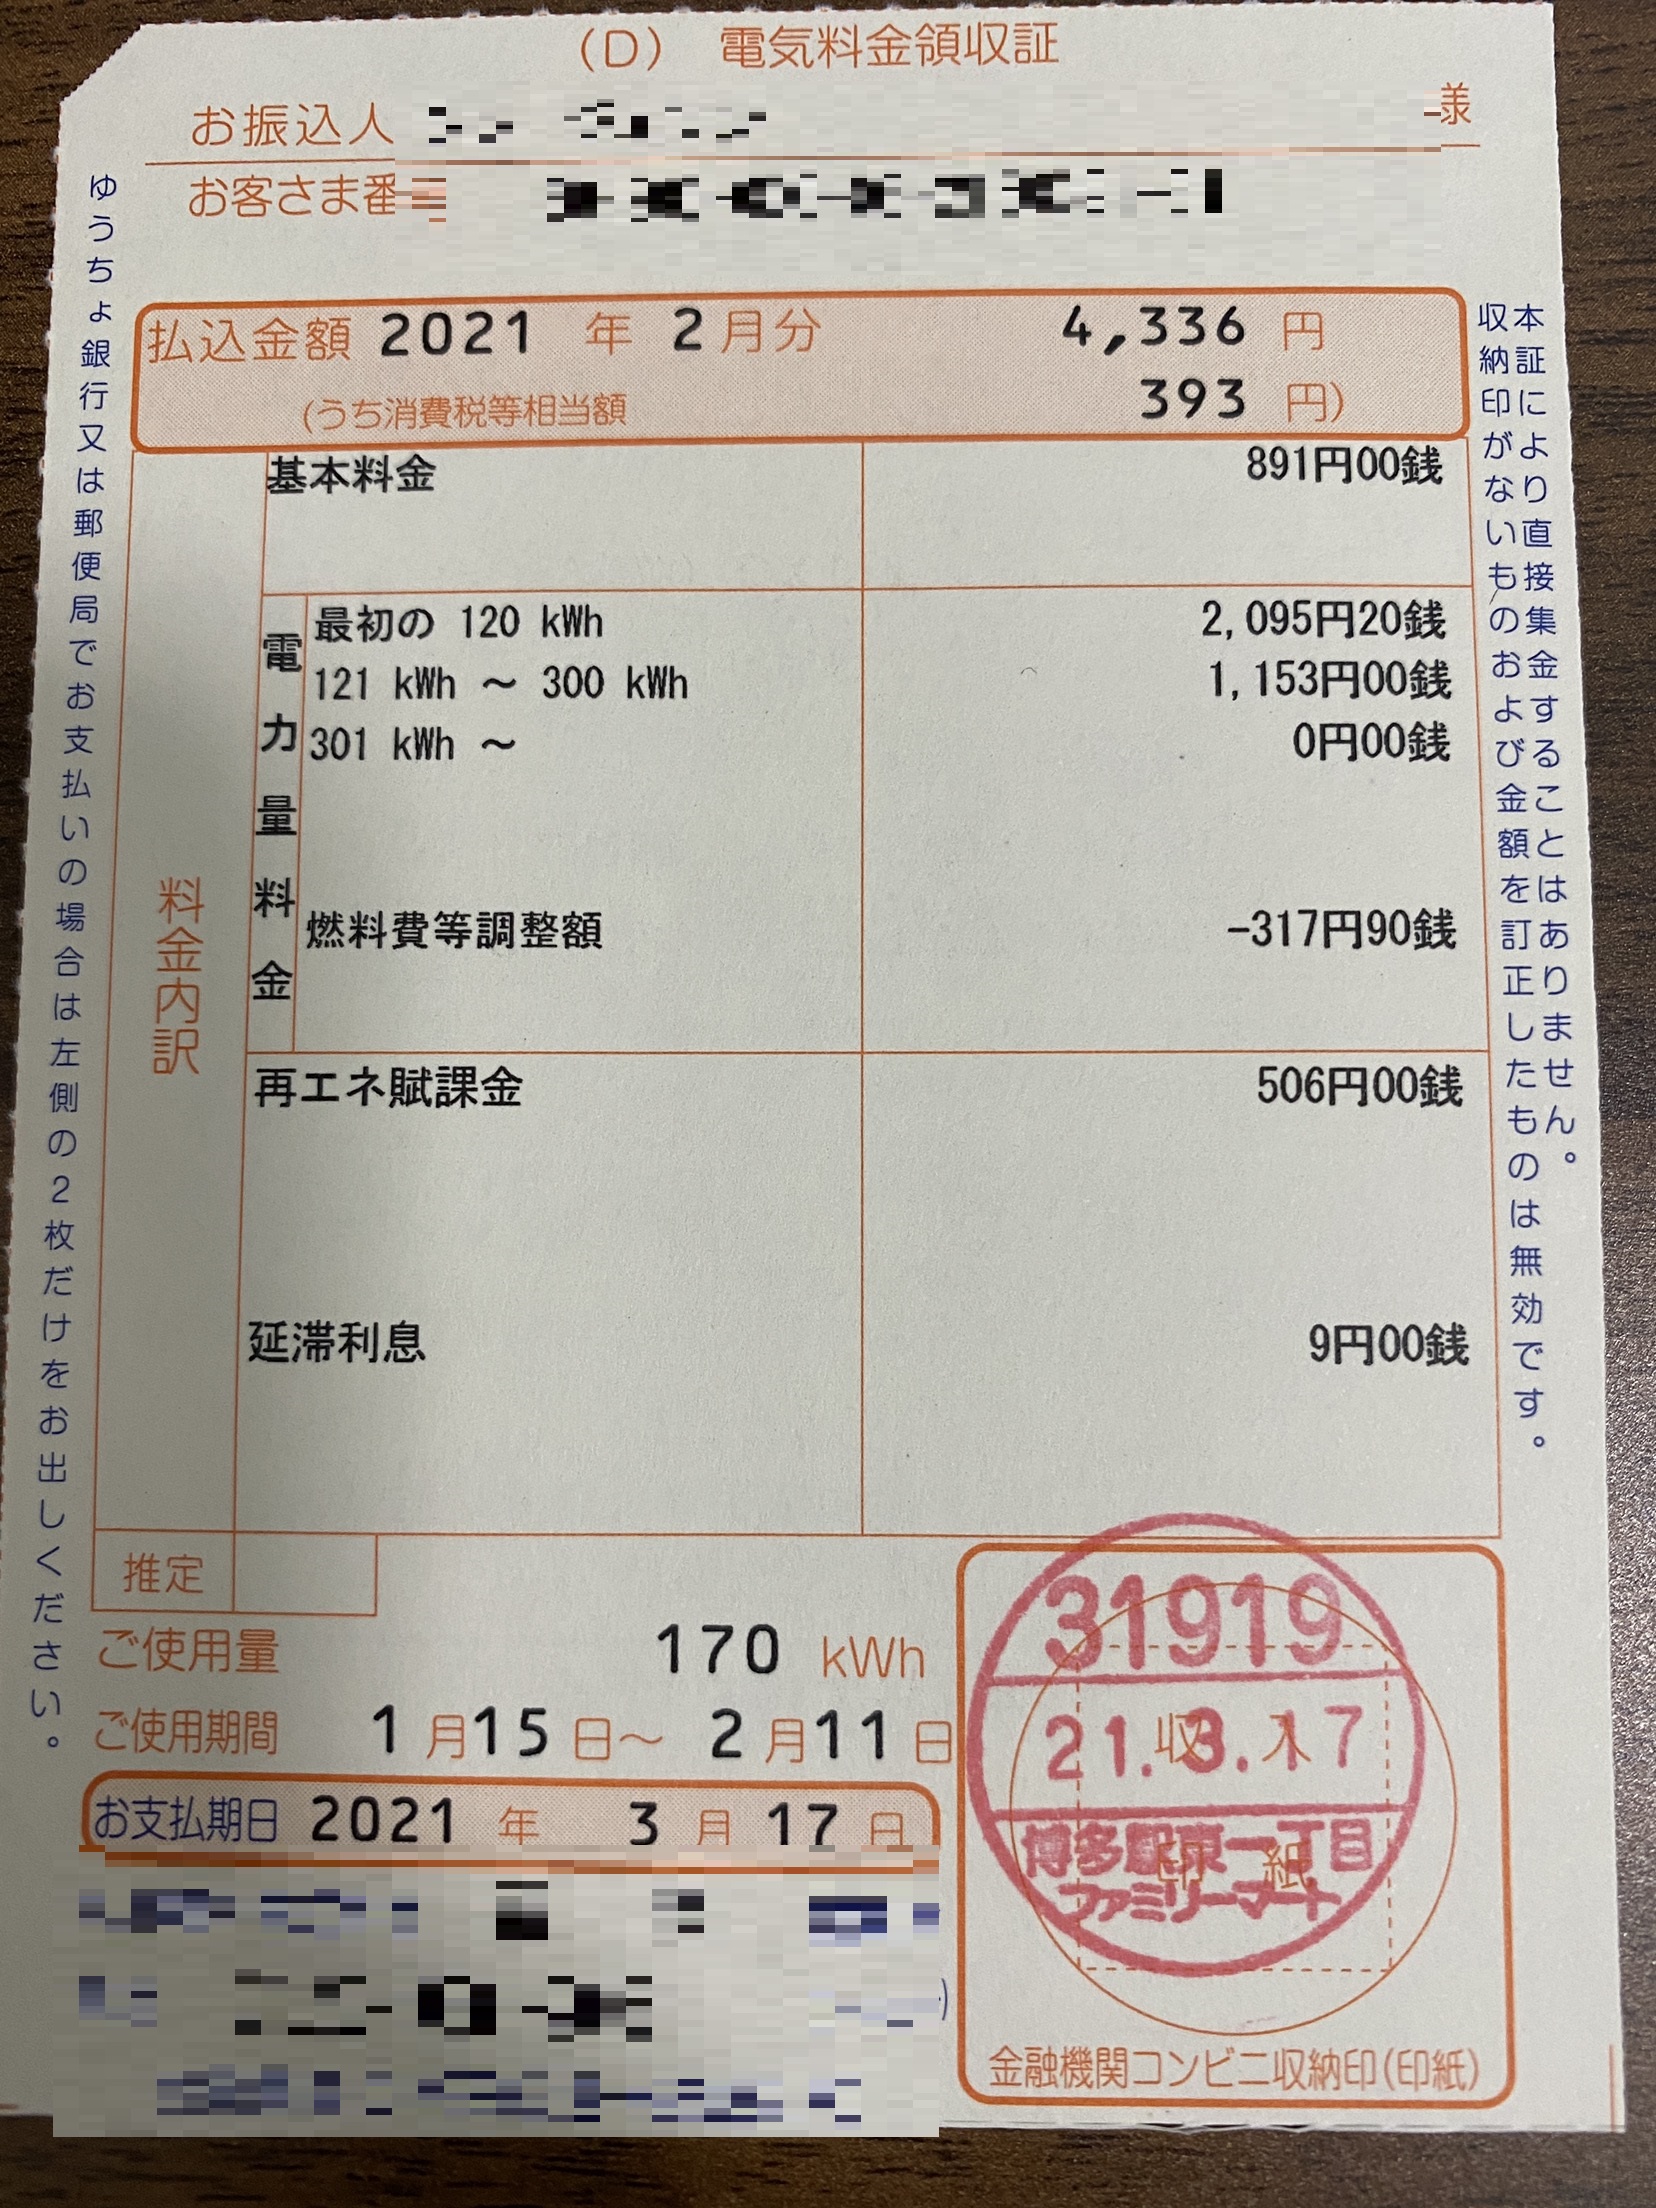 (D) 電気料金領収証
お振込人 様
お客さま番
払込金額 2021 年 2 月分 4,336 円
(うち消費税等相当額 393 円)
料金内訳
基本料金 891円00銭
電力量料金
最初の 120 kWh 2,095円20銭
121 kWh ～ 300 kWh 1,153円00銭
301 kWh ～ 0円00銭
燃料費等調整額 -317円90銭
再エネ賦課金 506円00銭
延滞利息 9円00銭
推定
ご使用量 170 kWh
ご使用期間 1 月 15 日～ 2 月 11 日
お支払期日 2021 年 3 月 17 日
31919
21.3.17
博多駅東一丁目
ファミリーマート
収入
印紙
金融機関コンビニ収納印(印紙)
本証により直接集金することはありません。
収納印がないものおよび金額を訂正したものは無効です。
ゆうちょ銀行又は郵便局でお支払いの場合は左側の2枚だけをお出しください。